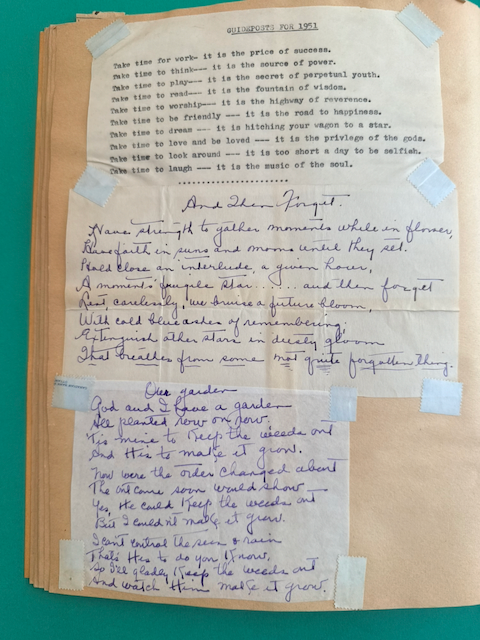 GUIDEPOSTS FOR 1951
Take time for work- it is the price of success.
Take time to think--- it is the source of power.
Take time to play--- it is the secret of perpetual youth.
Take time to read--- it is the fountain of wisdom.
Take time to worship--- it is the highway of reverence.
Take time to be friendly --- it is the road to happiness.
Take time to dream --- it is hitching your wagon to a star.
Take time to love and be loved --- it is the privlege of the gods.
Take time to look around --- it is too short a day to be selfish.
Take time to laugh --- it is the music of the soul.
And Then Forget.
Have strength to gather moments while in flower,
Have faith in suns and moons until they set.
Hold close an interlude, a given hour,
A moment's fragile star...... and then forget
Lest, carelessly, we bruise a future bloom,
With cold blue ashes of remembering;
Extinguish other stars in dusty gloom
That breathes from some not quite forgotten thing.
Our garden
God and I have a garden
All planted row on row.
'Tis mine to keep the weeds out
And His to make it grow.
Now were the order changed about
The outcome soon would show
Yes, He could keep the weeds out
But I couldn't make it grow.
I can't control the sun & rain
That's His to do you know,
So I'll gladly keep the weeds out
And watch Him make it grow.